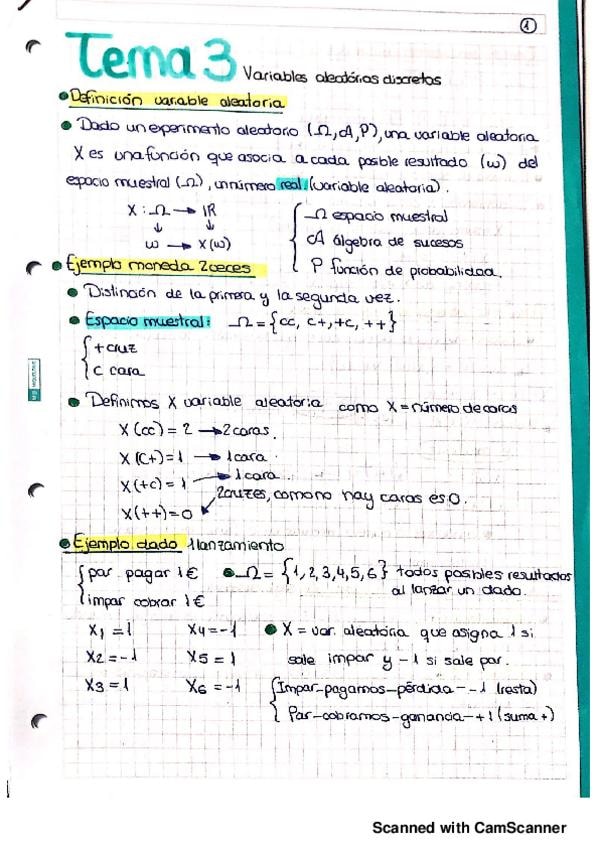 1
Tema 3 Variables aleatórias discretas
Definición variable aleatoria
Dado un experimento aleatorio (Ω, A, P), una variable aleatoria
X es una función que asocia a cada posible resultado (ω) del
espacio muestral (Ω), un número real. (variable aleatoria).
X : Ω → IR
ω → X(ω)
Ω espacio muestral
A álgebra de sucesos
P función de probabilidad.
Ejemplo moneda 2 veces
Distinción de la primera y la segunda vez.
Espacio muestral: Ω = {cc, c+, +c, ++}
+ cruz
c cara
Definimos X variable aleatoria como X = número de caras
X (cc) = 2 → 2 caras.
X (C+) = 1 → 1 cara.
X (+c) = 1 → 1 cara.
X (++) = 0 2 cruzes, como no hay caras es 0.
Ejemplo dado 1 lanzamiento
par pagar 1 € Ω = {1, 2, 3, 4, 5, 6} todos posibles resultados
impar cobrar 1 € al lanzar un dado.
X1 = 1 X4 = -1 X = var. aleatória que asigna 1 si
X2 = -1 X5 = 1 sale impar y -1 si sale par.
X3 = 1 X6 = -1 Impar-pagamos-pérdida - -1 (resta)
Par-cobramos-ganancia - +1 (suma +)
Scanned with CamScanner